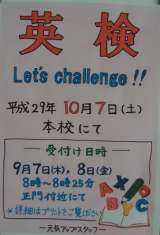 英検
Let's challenge!!
平成29年 10月7日(土)
本校にて
受付け日時
9月7日(木)、8日(金)
8時〜8時25分
正門付近にて
*詳細はプリントをご覧ださい
A X P
B Y C
ー元気アップスタッフー